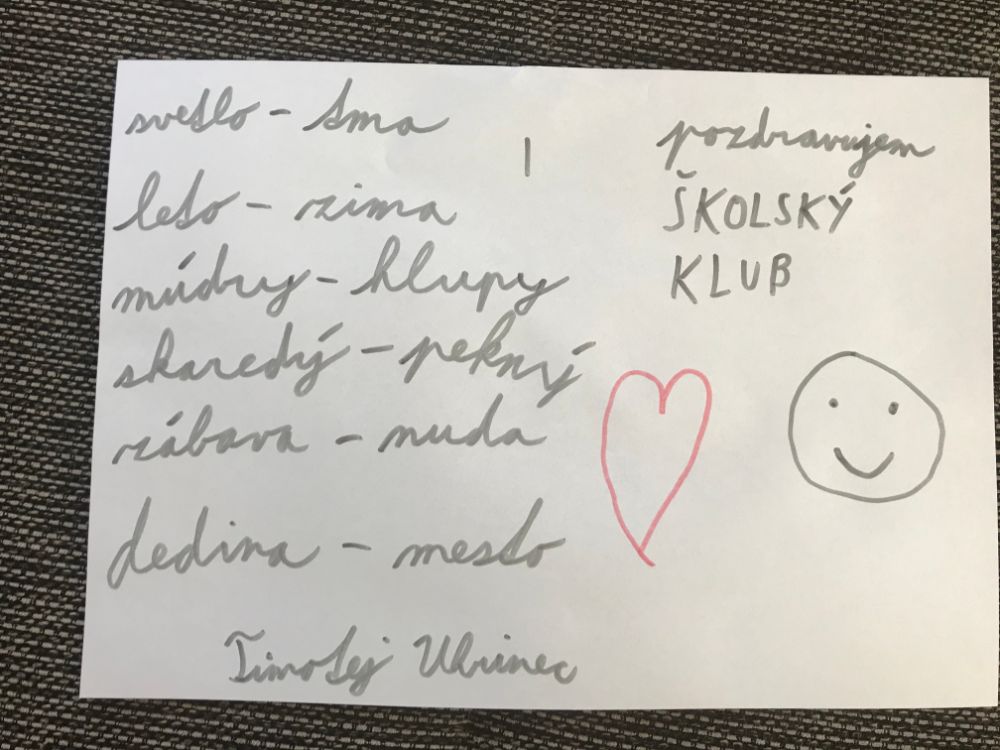 svetlo - tma
leto - zima
múdry - hlupy
skaredý - pekný
zábava - nuda
dedina - mesto
Timotej Uhrinec
pozdravujem
ŠKOLSKÝ
KLUB